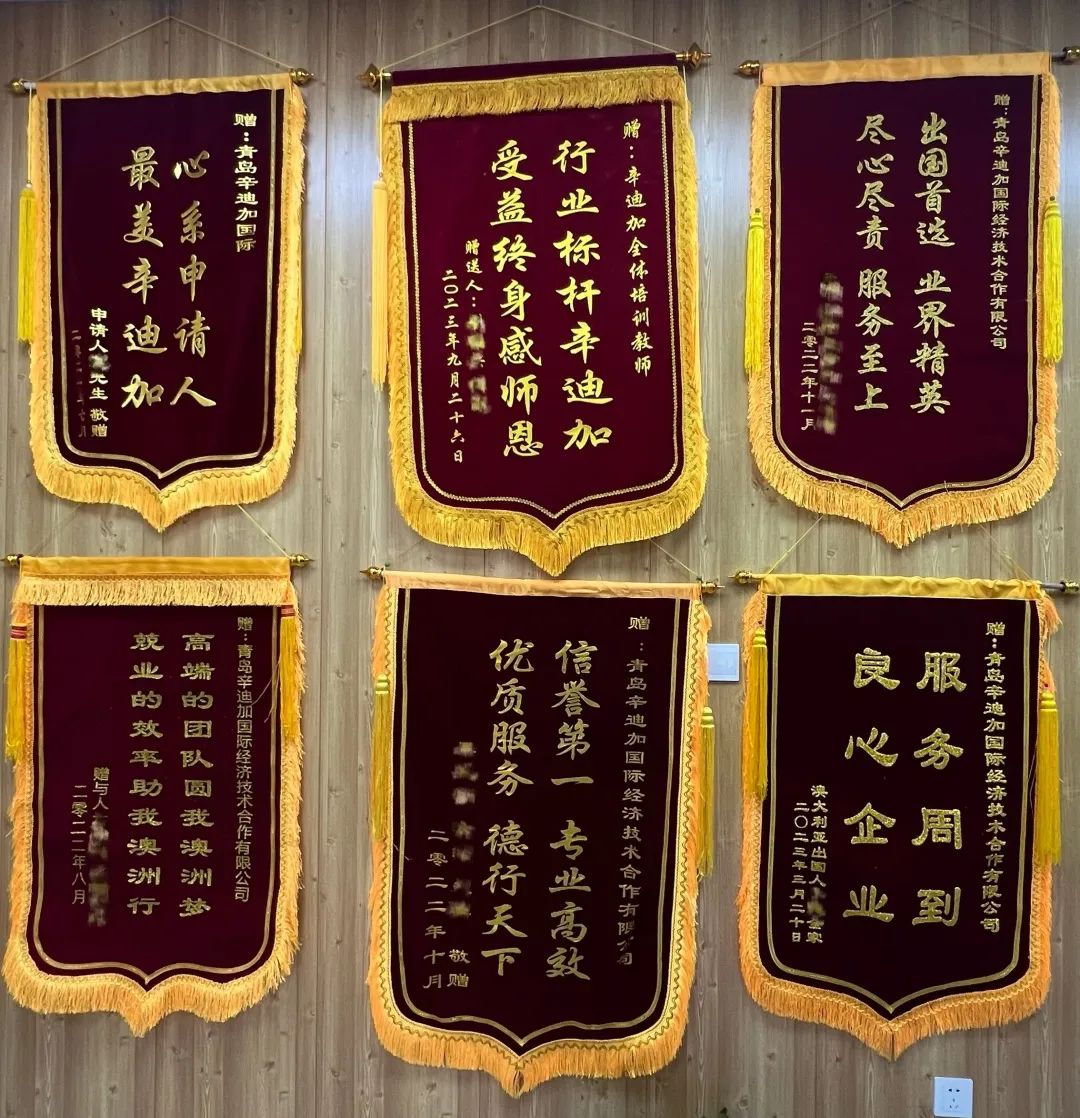 赠：青岛辛迪加国际
心系申请人
最美辛迪加
申请人
先生 敬赠
赠：辛迪加全体培训教师
行业标杆辛迪加
受益终身感师恩
赠送人：
二〇二三年九月二十六日
赠：青岛辛迪加国际经济技术合作有限公司
出国首选 业界精英
尽心尽责 服务至上
二零二二年十一月
赠：青岛辛迪加国际经济技术合作有限公司
高端的团队圆我澳洲梦
兢业的效率助我澳洲行
赠与人
二零二二年八月
赠：青岛辛迪加国际经济技术合作有限公司
信誉第一 专业高效
优质服务 德行天下
敬赠
二零二二年十月
赠：青岛辛迪加国际经济技术合作有限公司
服务周到
良心企业
澳大利亚出国人
全家
二〇二三年三月二十日